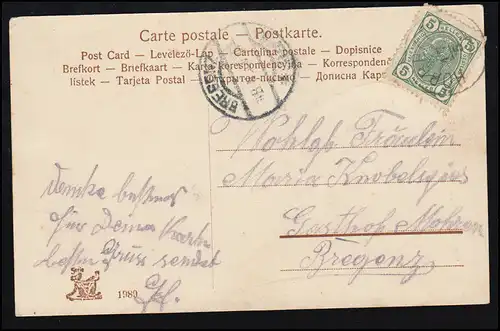 Carte postale – Postkarte.
Post Card – Levelező-Lap – Cartolina postale – Dopisnice
Brefkort – Briefkaart – Karta korespondencyjna – Korresponden
listek – Tarjeta Postal – Открытое письмо – Дописна Кар
5 5
5 5
BREGENZ
Wohlgb. Fräulein
Maria
Gasthof Mohren
Bregenz
Danke bestens
für Deine Karte
besten Gruss sendet
1989